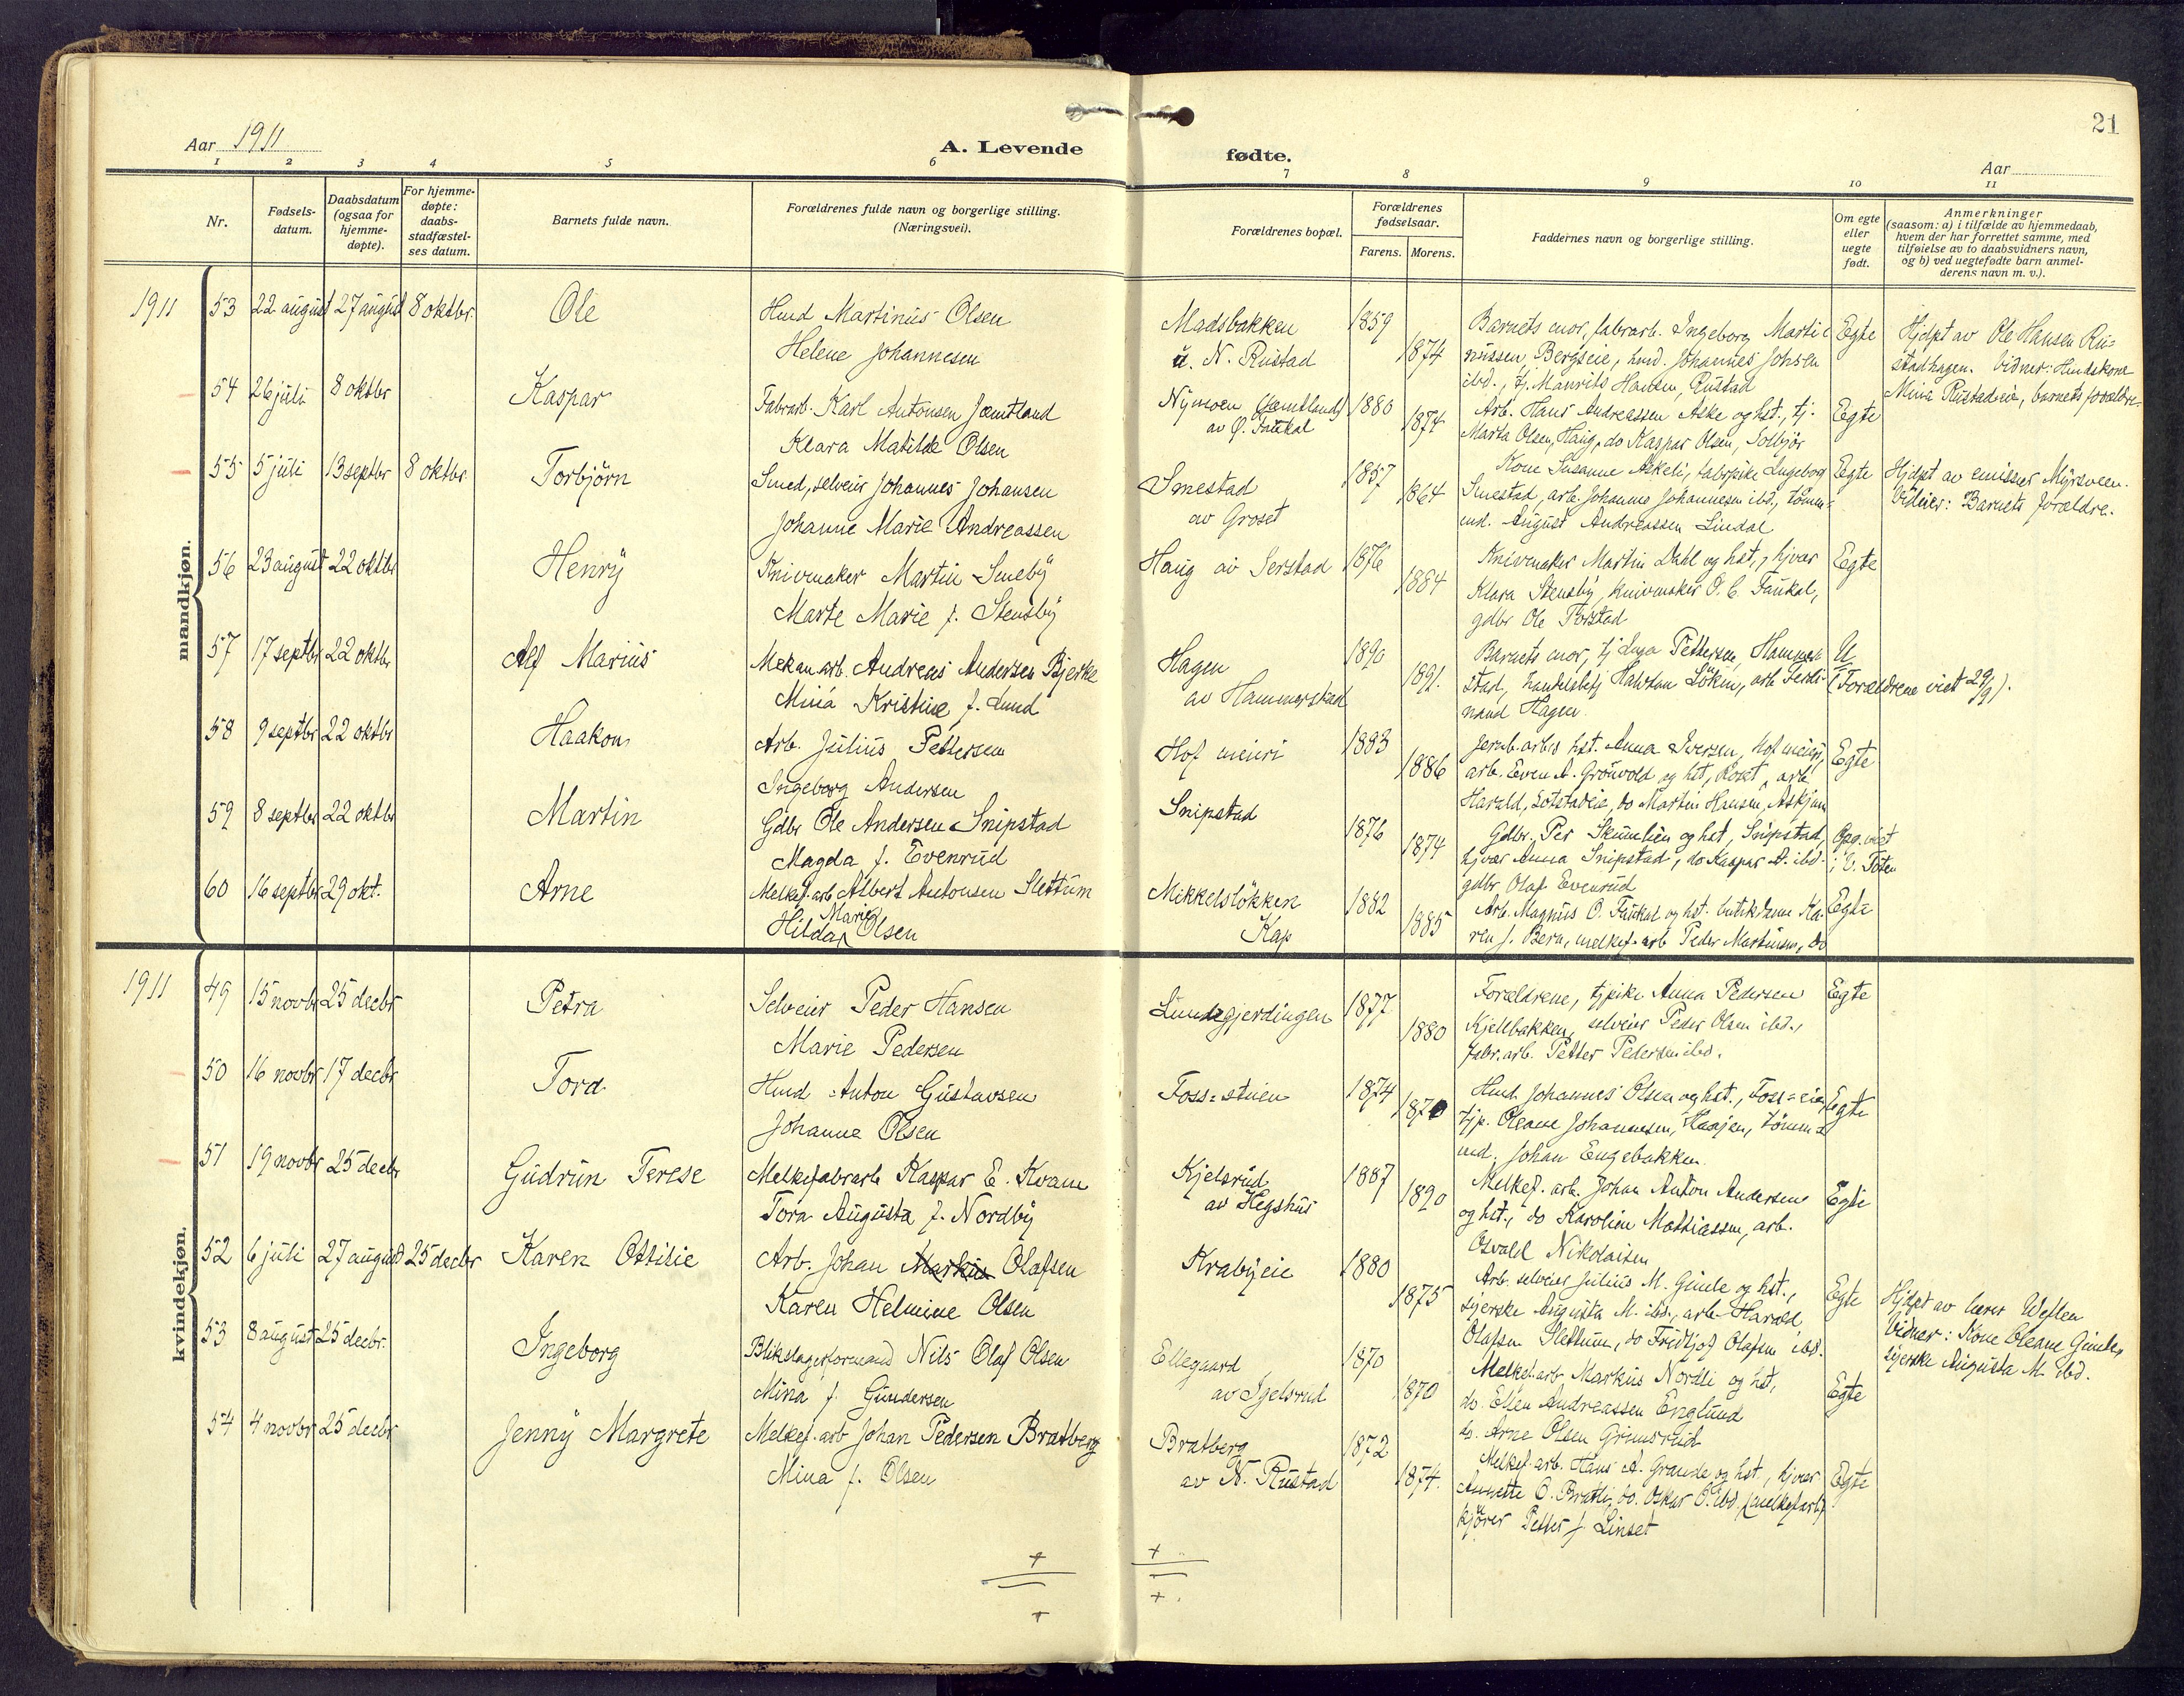 21
Aar 1911
A. Levende
fødte.
Aar
1 2 3 4 5 6 7 8 9 10 11
Nr.
Fødsels-
datum.
Daabsdatum
(ogsaa for
hjemme-
døpte).
For hjemme-
døpte:
daabs-
stadfæstel-
ses datum.
Barnets fulde navn.
Forældrenes fulde navn og borgerlige stilling.
(Næringsvei).
Forældrenes bopæl.
Forældrenes
fødselsaar.
Farens. Morens.
Faddernes navn og borgerlige stilling.
Om egte
eller
uegte
født.
Anmerkninger
(saasom: a) i tilfælde av hjemmedaab,
hvem der har forrettet samme, med
tilføielse av to daabsvidners navn,
og b) ved uegtefødte barn anmel-
derens navn m. v.).
mandkjøn.
1911 53 22 august 27 august 8 oktbr. Ole
Hmd Martinus Olsen
Helene Johannesen
Madsbakken
u. N. Rustad
1859
1874
Barnets mor, fabrarb. Ingeborg Marti-
nussen, Bergseie, hmd. Johannes Johsen
ibd., tj. Maurits Hansen, Rustad
Egte
Hjdpt av Ole Hansen Ru-
stadhagen. Vidner: Hmdskone
Mina Rustadeie, barnets forældre.
54 26 juli 8 oktbr Kaspar
Fabrarb. Karl Antonsen Jæmtland
Klara Matilde Olsen
Nymoen (Jæmtland)
av Ø. Faukal
1880
1874
Arb. Hans Andreassen Aske og hst., tj.
Marta Olsen, Haug, do Kaspar Olsen, Solbjör
Egte
55 5 juli 13 septbr 8 oktbr. Torbjörn
Smed, selveier Johannes Johansen
Johanne Marie Andreassen
Smestad
av Groset
1857
1864
Kone Susanne Askeli, fabrpike Ingeborg
Smestad, arb. Johannes Johannesen ibd., tömm-
md. August Andreassen Lindal
Egte
Hjdpt av emissær Myrsveen.
Vidner: Barnets forældre.
56 23 august 22 oktbr Henry
Knivmaker Martin Smeby
Marte Marie f. Stensby
Haug av Serstad
1876
1884
Knivmaker Martin Dahl og hst., hjvær
Klara Stensby, knivmaker O. C. Faukal,
gdbr Ole Torstad
Egte
57 17 septbr 22 oktbr Alf Marius
Mekan.arb. Andreas Andersen Bjerke
Mina Kristine f. Lund
Hagen
av Hammerstad
1890
1891.
Barnets mor, tj Inga Pettersen, Hammer-
stad, handelsbetj Halvdan Löken, arb Ferdi-
nand Hagen.
U
(Forældrene viet 29/9).
58 9 septbr 22 oktbr Haakon
Arb. Julius Pettersen
Ingeborg Andersen
Hof meieri
1883
1886
Jernb.arbs hst. Anna Iversen, Hof meieri,
arb. Even A. Grönvold og hst, Roset, arb
Harald, Sotstadeie, do Martin Hansen, Askjum
Egte
59 8 septbr 22 oktbr Martin
Gdbr Ole Andersen Snipstad
Magda f. Evenrud
Snipstad
1876
1874
Gdbr. Per Skumlien og hst, Snipstad,
hjvær Anna Snipstad, do Kaspar A. ibd.
gdbr Olaf Evenrud
Opg. viet
i V. Toten
60 16 septbr 29 okt. Arne
Melkef.arb Albert Antonsen Slettum
Hilda Marie Olsen
Mikkelslökken
Kap
1882
1885
Arb. Magnus O. Faukal og hst. butikdame Ka-
ren f. Bern, melkef.arb Peder Martinsen, do
Egte
kvindekjøn.
1911 49 15 novbr 25 decbr Petra
Selveier Peder Hansen
Marie Pedersen
Lundegjerdingen
1877
1880
Forældrene, tjpike Anna Pedersen
Kjellbakken, selveier Peder Olsen ibd.,
fabr.arb. Petter Pedersen ibd.
Egte
50 16 novbr 17 decbr Tora
Hmd Anton Gustavsen
Johanne Olsen
Foss-stuen
1874
1870
Hmd Johannes Olsen og hst., Foss-eie,
tjp. Oleane Johannesen, Haajen, tömm-
md. Johan Engebakken.
Egte
51 19 novbr 25 decbr Gudrun Terese
Melkefabrarb Kaspar E. Kvam
Tora Augusta f. Nordby
Kjelsrud
av Hegshus
1887
1890
Melkef. arb. Johan Anton Andersen
og hst., do Karoline Mattiassen, arb.
Osvald Nikolaisen
Egte
52 6 juli 27 august 25 decbr Karen Ottilie
Arb. Johan Markus Olafsen
Karen Helmine Olsen
Krabyeie
1880
1875
Arb. selveier Julius M. Gimle og hst.,
syerske Augusta M. ibd., arb. Harald
Olafsen Slettum, do Fridtjof Olafsen ibd.
Egte
Hjdpt av lærer Weflen
Vidner: Kone Oleane Gimle,
syerske Augusta M. ibd.
53 8 august 25 decbr. Ingeborg
Blikslagerformand Nils Olaf Olsen
Mina f. Gundersen
Ellegaard
av Igelsrud
1870
1870
Melkef.arb. Markus Nordli og hst,
do. Ellen Andreassen Englund
do. Arne Olsen Grimsrud
Egte
54 4 novbr 25 decbr Jenny Margrete
Melkef.arb Johan Pedersen Bratberg
Mina f. Olsen
Bratberg
av N. Rustad
1872
1874.
Melkef.arb. Hans A. Grande og hst., hjvær
Annette O. Bratli, do. Oskar O. ibd. (melkefarb),
kjörer Petter J. Linset
Egte